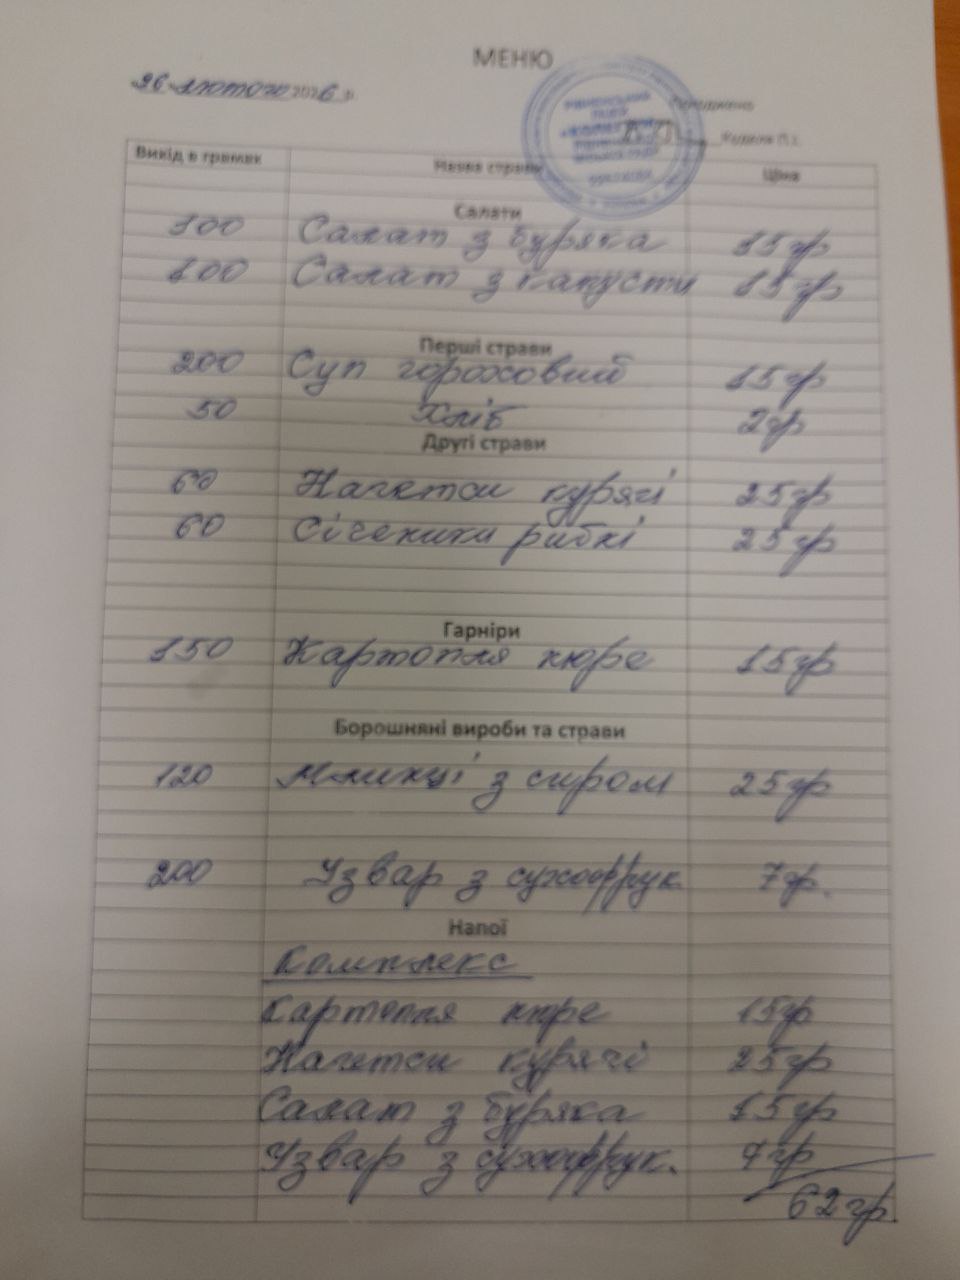 МЕНЮ
26 лютого 2026 р.
Погоджено
Вихід в грамах Назва страви Ціна
Салати
100 Салат з буряка 15гр
100 Салат з капусти 15гр
Перші страви
200 Суп гороховий 15гр
50 Хліб 2гр
Другі страви
60 Нагетси курячі 25гр
60 Січеники рибні 25гр
Гарніри
150 Картопля пюре 15гр
Борошняні вироби та страви
120 Млинці з сиром 25гр
200 Узвар з сухофрук 7гр.
Напої
Комплекс
Картопля пюре 15гр
Нагетси курячі 25гр
Салат з буряка 15гр
Узвар з сухофрук. 7гр
62гр